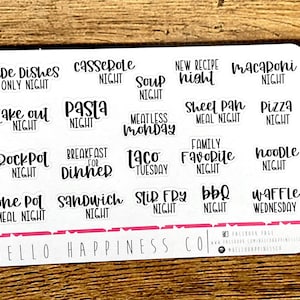 DE DISHES
ONLY NIGHT
CASSEROLE
NIGHT
SOUP
NIGHT
NEW RECIPE
night
MACARONI
NIGHT
AKE OUT
NIGHT
PASTA
NIGHT
MEATLESS
MONDAY
SHEET PAN
MEAL NIGHT
PIZZA
NIGHT
ROCKPOT
NIGHT
BREAKFAST
FOR
DINNER
TACO
TUESDAY
FAMILY
FAVORITE
NIGHT
NOODLE
NIGHT
ONE POT
MEAL NIGHT
SANDWICH
NIGHT
STIR FRY
NIGHT
BBQ
NIGHT
WAFFLE
WEDNESDAY
ELLO HAPPINESS CO
FACEBOOK PAGE